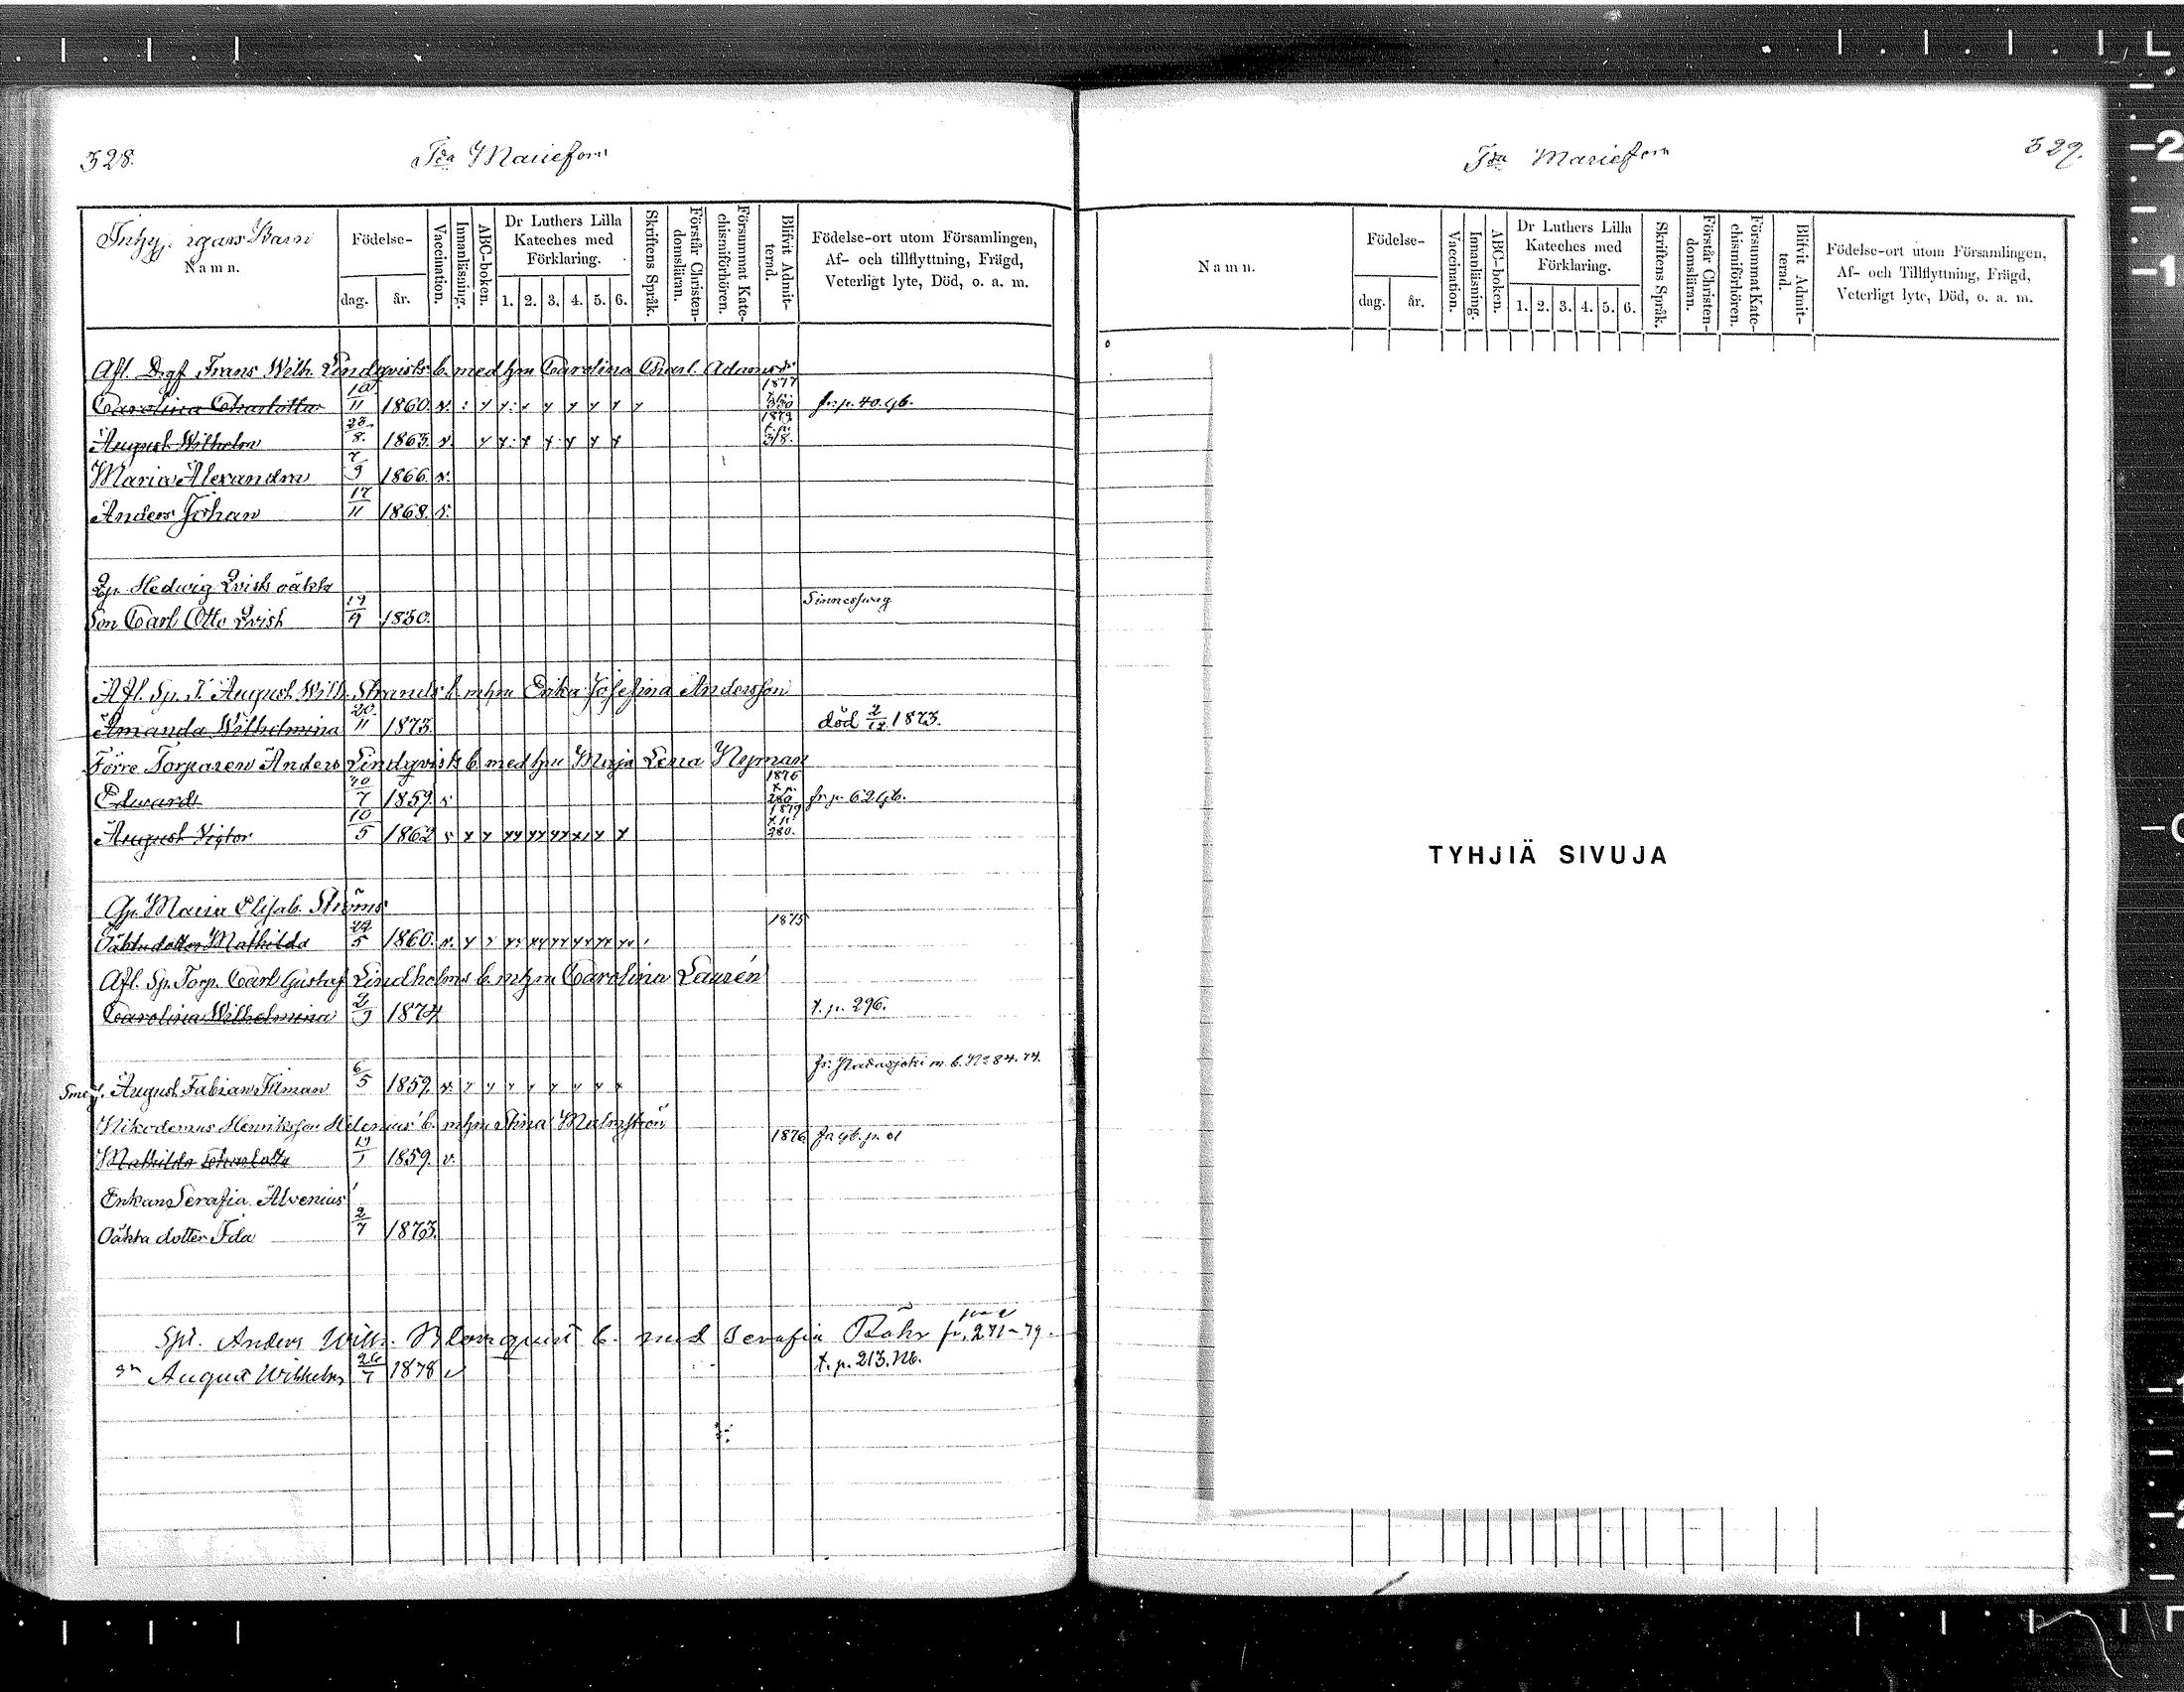 328.
Tra Mariefors
Inhys. Barn
Namn.
Födelse-
dag.
år.
Vaccination.
Innanläsning.
ABC-boken.
Dr Luthers Lilla
Kateches med
Förklaring.
1. 2. 3. 4. 5. 6.
Skriftens Språk.
Förstår Christen-
domsläran.
Försummat Kate-
chismiförhören.
Blifvit Admit-
terad.
Födelse-ort utom Församlingen,
Af- och tillflyttning, Frägd,
Veterligt lyte, Död, o. a. m.
Afl. Drgf Frans Wilh. Lindqvists b. med hu Carolina Charl. Adams dr
Carolina Charlotta 10/11 1860. v. 1877 fr. p. 40. gb.
August Wilhelm 28/8. 1863. v. 1879 t. p. 318.
Maria Alexandra 7/9 1866. v.
Anders Johan 17/11 1868. v.
Qp. Hedwig Qvists oäkta
Son Carl Otto Qvist 19/9 1850. Sinnessvag
Afl. Sp. T. August Wilh. Strands b. m hu Erika Josefina Andersson
Amanda Wilhelmina 20./11 1873. död 2/12 1873.
Förre Torparen Anders Lindqvists b. med hu Maja Lena Nyman
Edward 30/7 1859. v 1876 t. p. 280 fr. p. 62 gb.
August Victor 10/5 1862 v 1879 t. p. 280.
Qp. Maria Elisab. Ströms
Oäkta dotter Mathilda 22/5 1860. v. 1875
Afl. Sp. Torp. Carl Gustaf Lindholms b. m hu Carolina Laurén
Carolina Wilhelmina 2/9 1874 t. p. 296.
Smeg. August Fabian Tilman 6/5 1859. v. fr. Padasjoki m. b. No 84. 74.
Nikodemus Henriksson Helenius' b. m hu Stina Malmström
Mathilda Charlotta 19/1 1859. v. 1876 fr gb. p. 01
Enkan Serafia Alvenius'
Oäkta dotter Ida 2/7 1873.
Spt. Anders Wilh. Blomqvist b. med Serafia Röhr fr. 271-79.
sn August Wilhelm 26/7 1878 v t. p. 213. Nb.
Tra Mariefors
329.
Namn.
Födelse-
dag.
år.
Vaccination.
Innanläsning.
ABC-boken.
Dr Luthers Lilla
Kateches med
Förklaring.
1. 2. 3. 4. 5. 6.
Skriftens Språk.
Förstår Christen-
domsläran.
Försummat Kate-
chismiförhören.
Blifvit Admit-
terad.
Födelse-ort utom Församlingen,
Af- och Tillflyttning, Frägd,
Veterligt lyte, Död, o. a. m.
TYHJIÄ SIVUJA